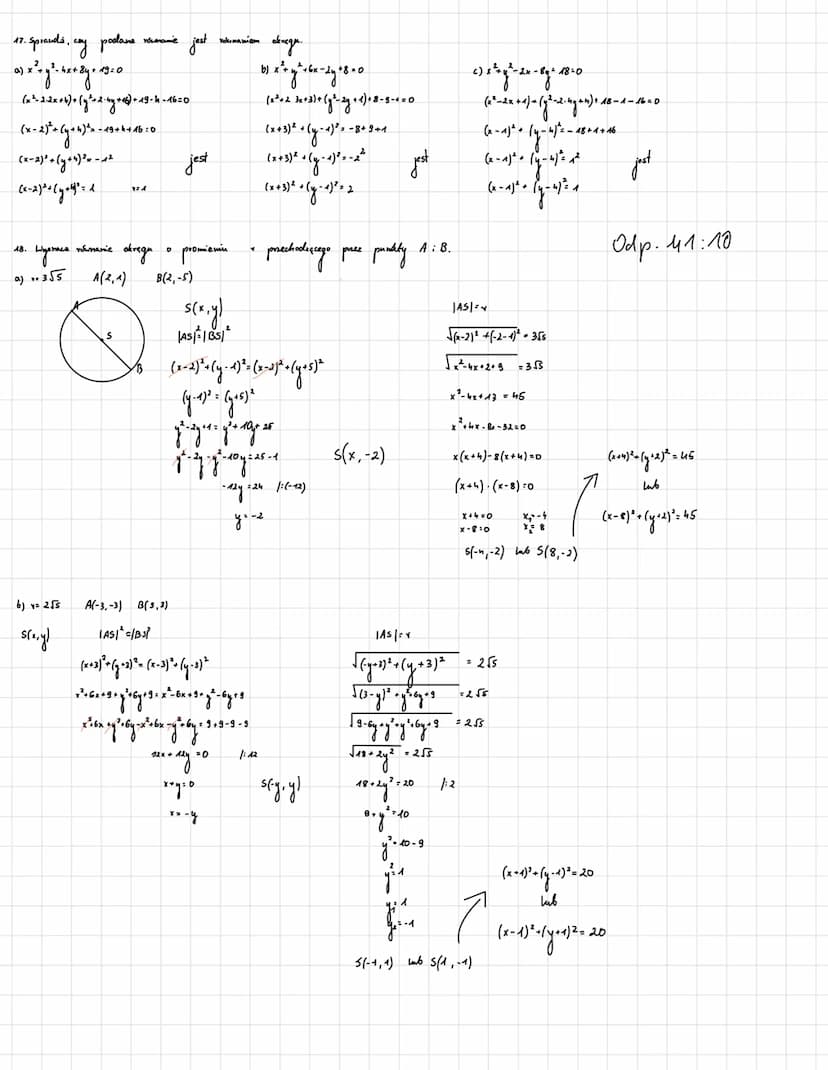 17. Sprawdź, czy podane równanie jest równaniem okręgu.
a) x²+y²-4x+8y+19=0
(x²-2·2x+4)+(y²+2·4y+16)+19-4-16=0
(x-2)²+(y+4)²=-19+4+16=0
(x-2)²+(y+4)²=-1²
jest
(x-2)²+(y+4)²=1 r=1
b) x²+y²+6x-2y+8=0
(x²+2·3x+3)+(y²-2y+1)+8-9-1=0
(x+3)²+(y-1)²=-8+9+1
(x+3)²+(y-1)²=-2²
jest
(x+3)²+(y-1)²=2
c) x²+y²-2x-8y+18=0
(x²-2x+1)+(y²-2·4y+4)+18-1-16=0
(x-1)²+(y-4)²=-18+1+16
(x-1)²+(y-4)²=1²
jest
(x-1)²+(y-4)²=1
18. Wyznacz równanie okręgu o promieniu r przechodzącego przez punkty A i B.
Odp. 41:10
a) r=3√5 A(2,1) B(2,-5)
A
S
B
S(x,y)
|AS|²=|BS|²
(x-2)²+(y-1)²=(x-2)²+(y+5)²
(y-1)²=(y+5)²
y²-2y+1=y²+10y+25
y²-2y-y²-10y=25-1
-12y=24 /:(-12)
y=-2
S(x,-2)
|AS|=r
√(x-2)²+(-2-1)²=3√5
√x²-4x+2+9=3√5
x²-4x+13=45
x²+4x-8x-32=0
x(x+4)-8(x+4)=0
(x+4)·(x-8)=0
x+4=0 x₁=-4
x-8=0 x₂=8
S(-4,-2) lub S(8,-2)
(x+4)²+(y+2)²=45
lub
(x-8)²+(y+2)²=45
b) r=2√5 A(-3,-3) B(3,3)
S(x,y) |AS|²=|BS|²
(x+3)²+(y+3)²=(x-3)²+(y-3)²
x²+6x+9+y²+6y+9=x²-6x+9+y²-6y+9
x²+6x+y²+6y-x²+6x-y²+6y=9+9-9-9
12x+12y=0 /:12
x+y=0
x=-y
S(-y,y)
|AS|=r
√(-y+3)²+(y+3)²=2√5
√(3-y)²+y²+6y+9=2√5
√9-6y+y²+y²+6y+9=2√5
√18+2y²=2√5
18+2y²=20 /:2
9+y²=10
y²=10-9
y²=1
y₁=1
y₂=-1
S(-1,1) lub S(1,-1)
(x+1)²+(y-1)²=20
lub
(x-1)²+(y+1)²=20